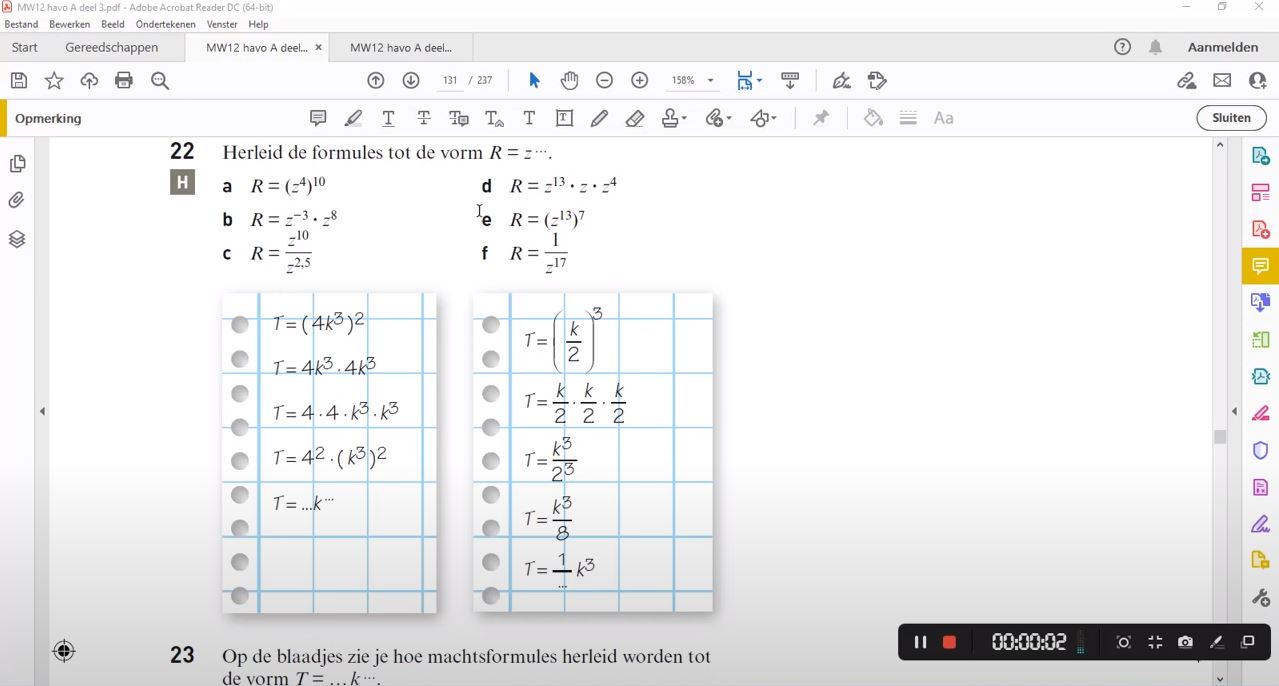 MW12 havo A deel 3.pdf - Adobe Acrobat Reader DC (64-bit)
Bestand Bewerken Beeld Ondertekenen Venster Help
Start Gereedschappen MW12 havo A deel... × MW12 havo A deel... Aanmelden
131 / 237 158%
Opmerking Aa Sluiten
22 Herleid de formules tot de vorm R = z^….
H
a R = (z^4)^10
b R = z^−3 · z^8
c R = z^10 / z^2,5
d R = z^13 · z · z^4
e R = (z^13)^7
f R = 1 / z^17
T = (4k^3)^2
T = 4k^3 · 4k^3
T = 4 · 4 · k^3 · k^3
T = 4^2 · (k^3)^2
T = ...k^…
T = (k/2)^3
T = k/2 · k/2 · k/2
T = k^3/2^3
T = k^3/8
T = 1/... k^3
00:00:02
23 Op de blaadjes zie je hoe machtsformules herleid worden tot
de vorm T = … k^….